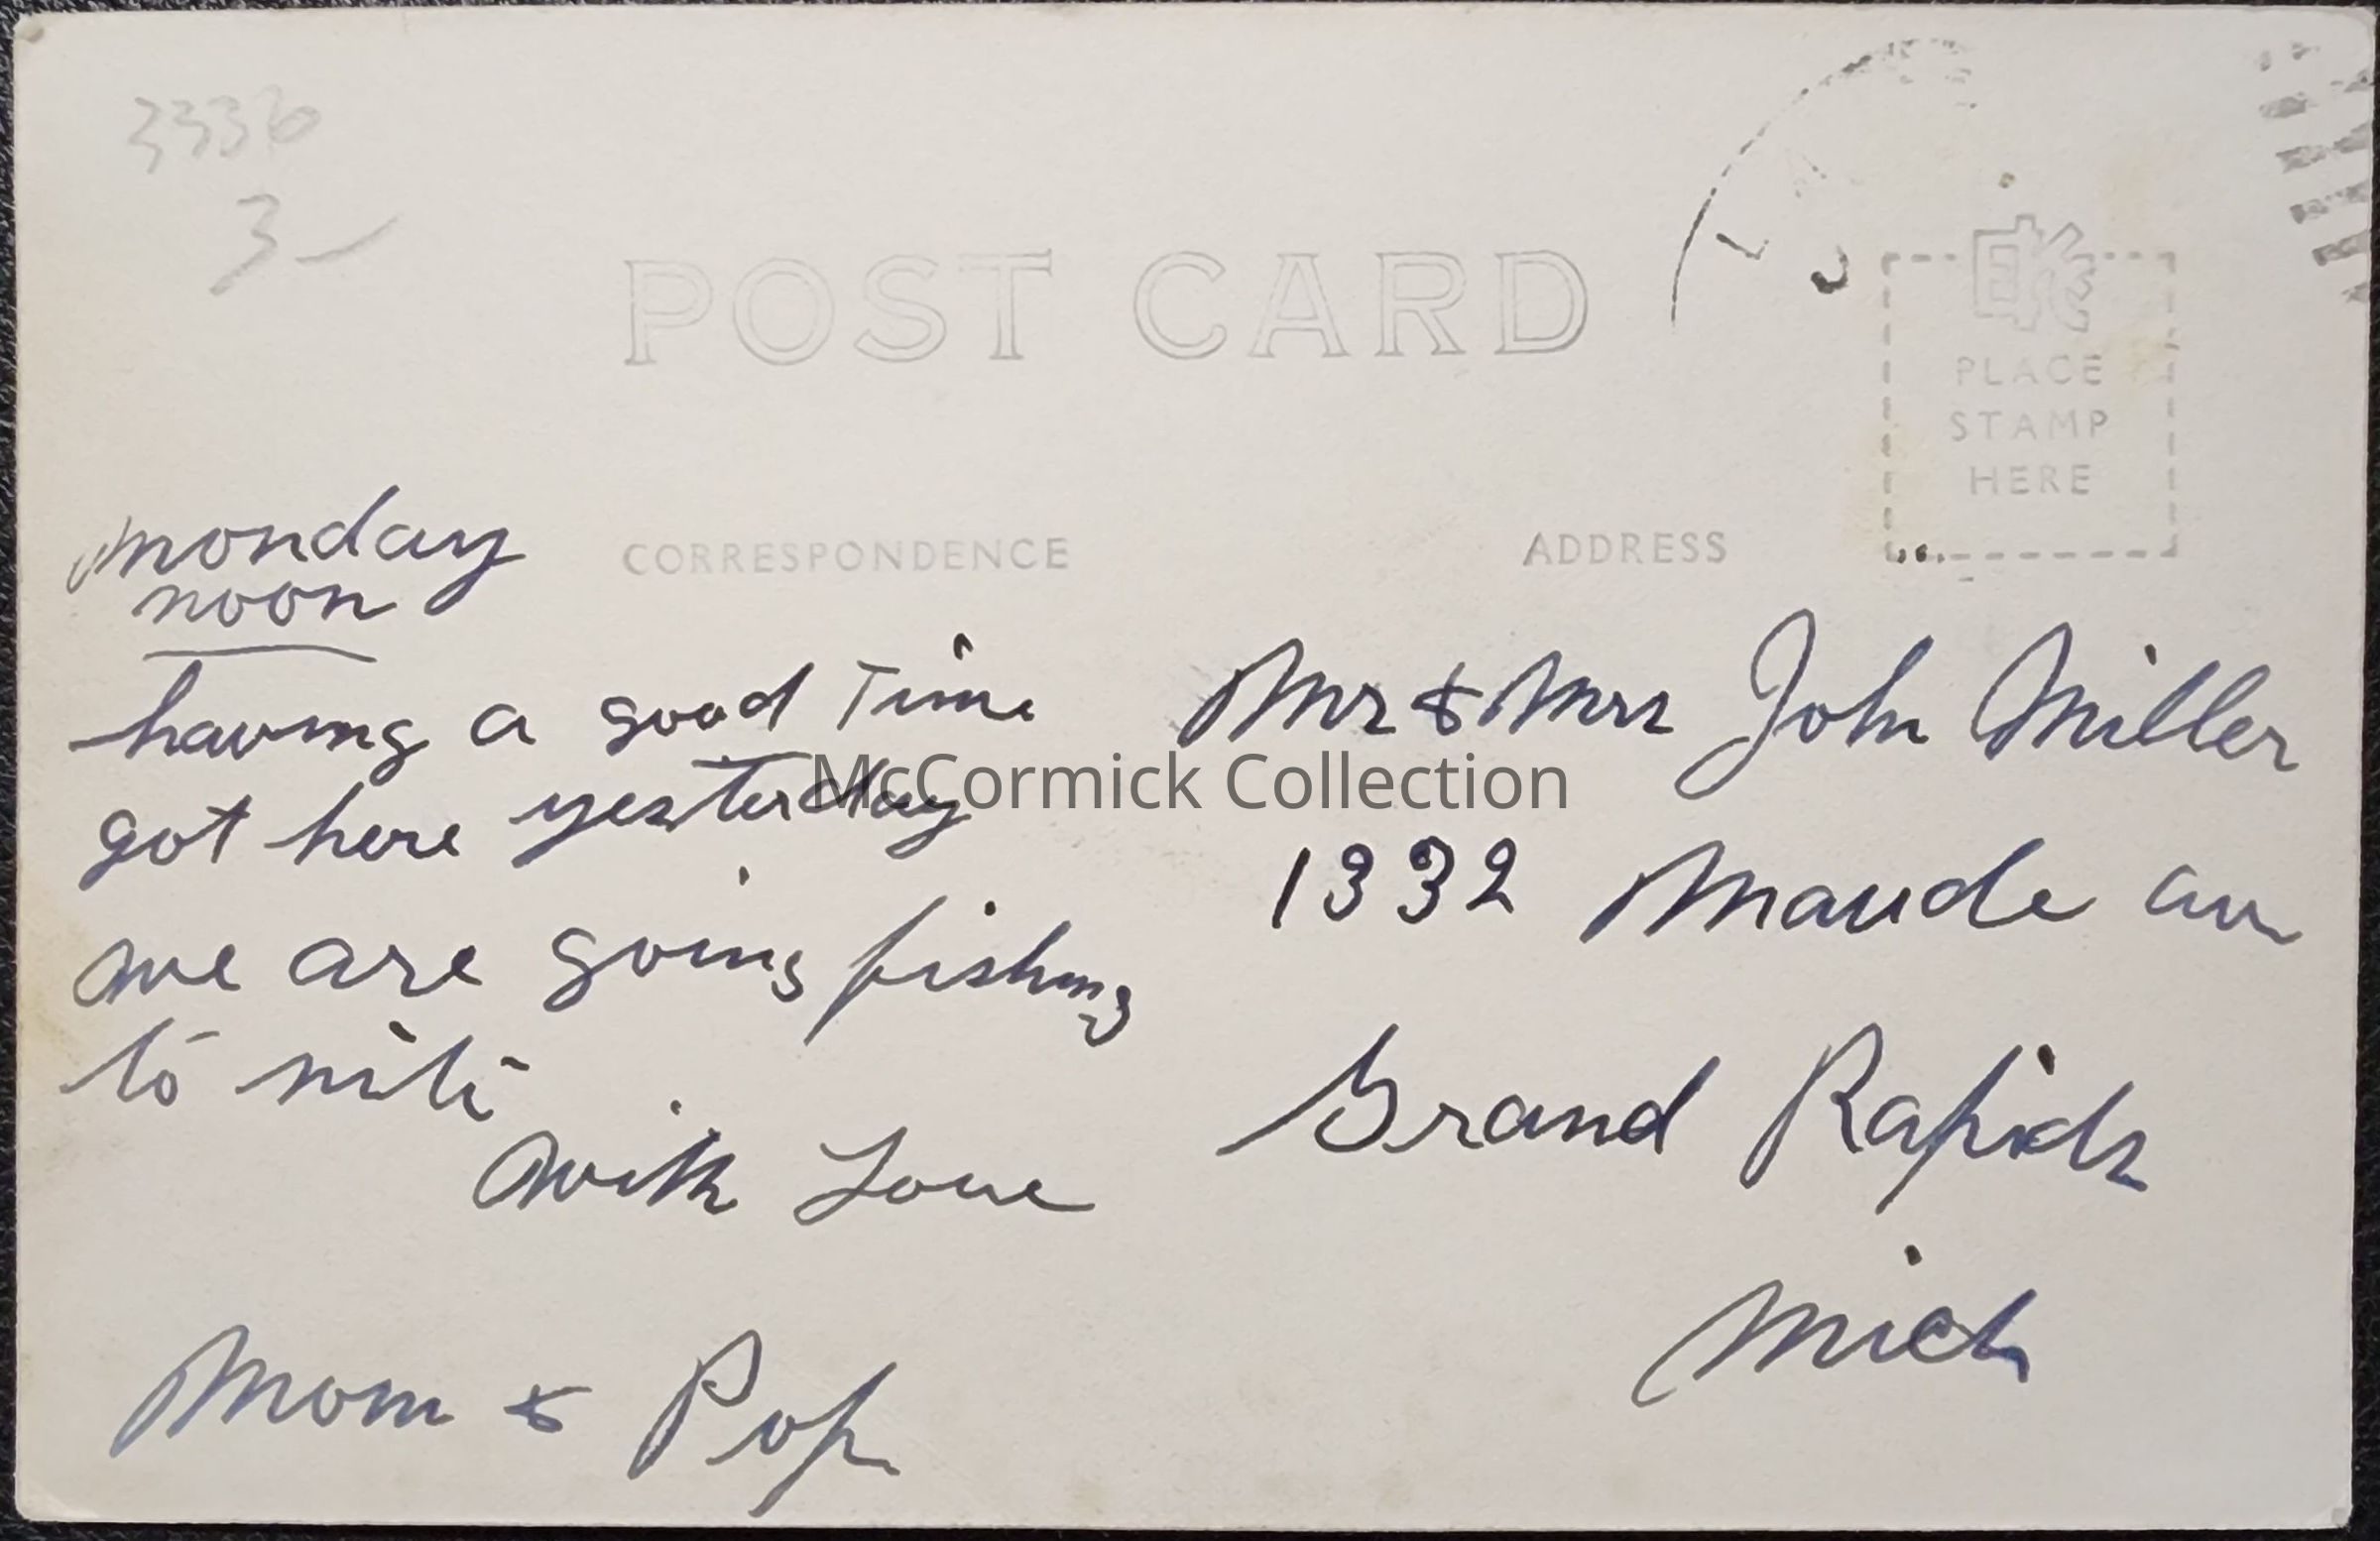 3336
3-
POST CARD
PLACE
STAMP
HERE
CORRESPONDENCE
ADDRESS
monday
noon
having a good Time
got here yesterday
we are going fishing
to nite
with Love
Mom & Pop
Mr & Mrs John Miller
1332 Maude av
Grand Rapids
Mich
McCormick Collection